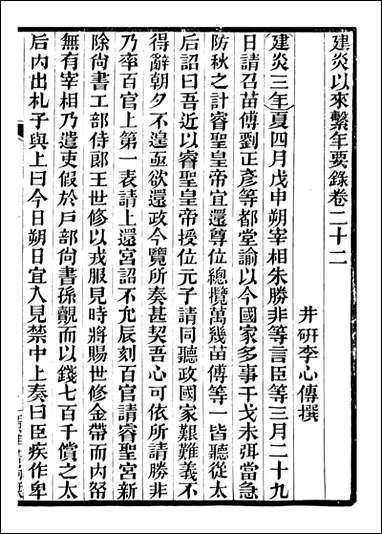 建炎以來繫年要錄卷二十二
井研李心傳撰
建炎三年夏四月戊申朔宰相朱勝非等言臣等三月二十九
日請召苗傅劉正彥等都堂諭以今國家多事干戈未弭當急
防秋之計睿聖皇帝宜還尊位總攬萬幾苗傅等一皆聽從太
后詔曰吾近以睿聖皇帝授位元子請同聽政國家艱難義不
得辭朝夕不遑亟欲還政今覽所奏甚契吾心可依所請勝非
乃率百官上第一表請上還宮詔不允辰刻百官請睿聖宮新
除尙書工部侍郎王世修以戎服見時將賜世修金帶而內帑
無有宰相乃遣吏假於戶部尙書孫覿而以錢七百千償之太
后內出札子與上曰今日朔日宜入見禁中上奏曰臣疾作卑